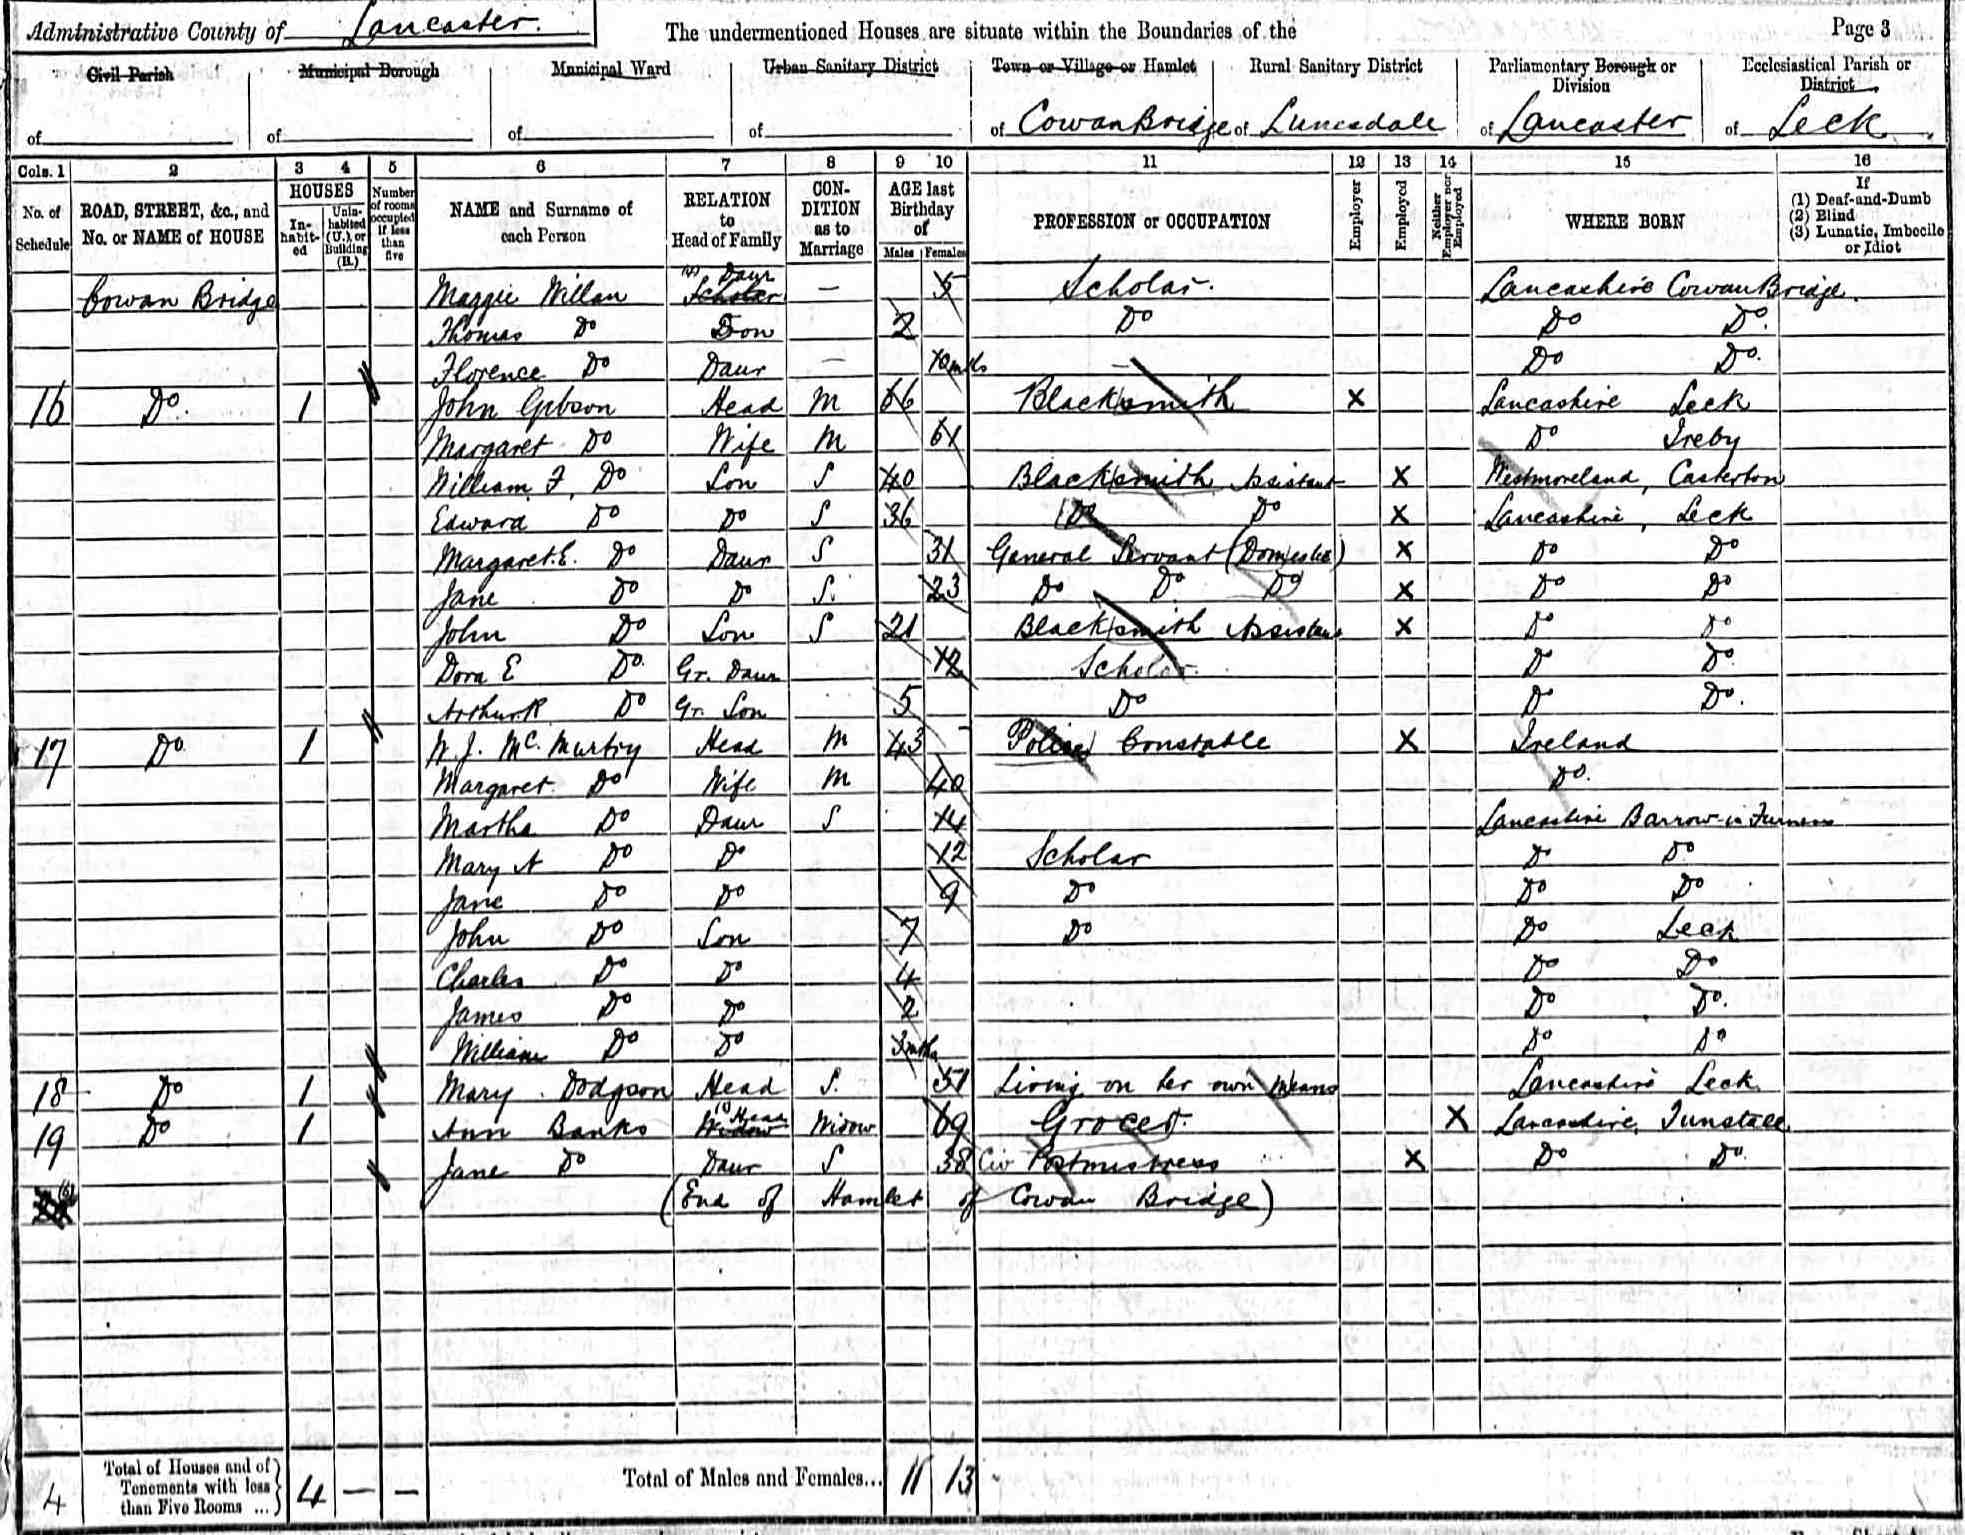 Administrative County of Lancaster. The undermentioned Houses are situate within the Boundaries of the Page 3
Civil Parish Municipal Borough Municipal Ward Urban Sanitary District Town or Village or Hamlet Rural Sanitary District Parliamentary Borough or Division Ecclesiastical Parish or District
of of of of of Cowan Bridge of Lunesdale of Lancaster of Leck
Cols. 1 2 3 4 5 6 7 8 9 10 11 12 13 14 15 16
No. of Schedule ROAD, STREET, &c., and No. or NAME of HOUSE HOUSES In-habit-ed Unin-habited (U.), or Building (B.) Number of rooms occupied if less than five NAME and Surname of each Person RELATION to Head of Family CON-DITION as to Marriage AGE last Birthday of Males Females PROFESSION or OCCUPATION Employer Employed Neither Employer nor Employed WHERE BORN If (1) Deaf-and-Dumb (2) Blind (3) Lunatic, Imbecile or Idiot
Cowan Bridge Maggie Willan Scholar Daur — 5 Scholar. Lancashire Cowan Bridge.
Thomas Do Son 2 Do Do Do.
Florence Do Daur — 10 mths — Do Do.
16 Do. 1 John Gibson Head M 66 Blacksmith X Lancashire Leck
Margaret Do Wife M 61 Do Ireby
William F. Do Son S 40 Blacksmith Assistant X Westmoreland, Casterton
Edward Do Do S 36 Do Do X Lancashire, Leck
Margaret E. Do Daur S 31 General Servant (Domestic) X Do Do
Jane Do Do S. 23 Do Do Do X Do Do
John Do Son S 21 Blacksmith Assistant X Do Do
Dora E Do. Gr. Daur 12 Scholar. Do Do.
Arthur R Do Gr. Son 5 Do Do Do.
17 Do. 1 W. J. Mc. Murtry Head M 43 Police Constable X Ireland
Margaret Do Wife M 40 Do.
Martha Do Daur S 14 Lancashire Barrow in Furness
Mary A Do Do 12 Scholar Do Do
Jane Do Do 9 Do Do Do
John Do Son 7 Do Do Leck
Charles Do Do 4 Do Do
James Do Do 2 Do Do.
William Do Do 3 mths Do Do
18 Do 1 Mary Dodgson Head S. 51 Living on her own Means Lancashire Leck
19 Do 1 Ann Banks Widow Head Widow 69 Grocer. X Lancashire, Tunstall
Jane Do Daur S 38 Civ Postmistress X Do Do.
(End of Hamlet of Cowan Bridge)
4 Total of Houses and of Tenements with less than Five Rooms ... 4 — — Total of Males and Females... 11 13